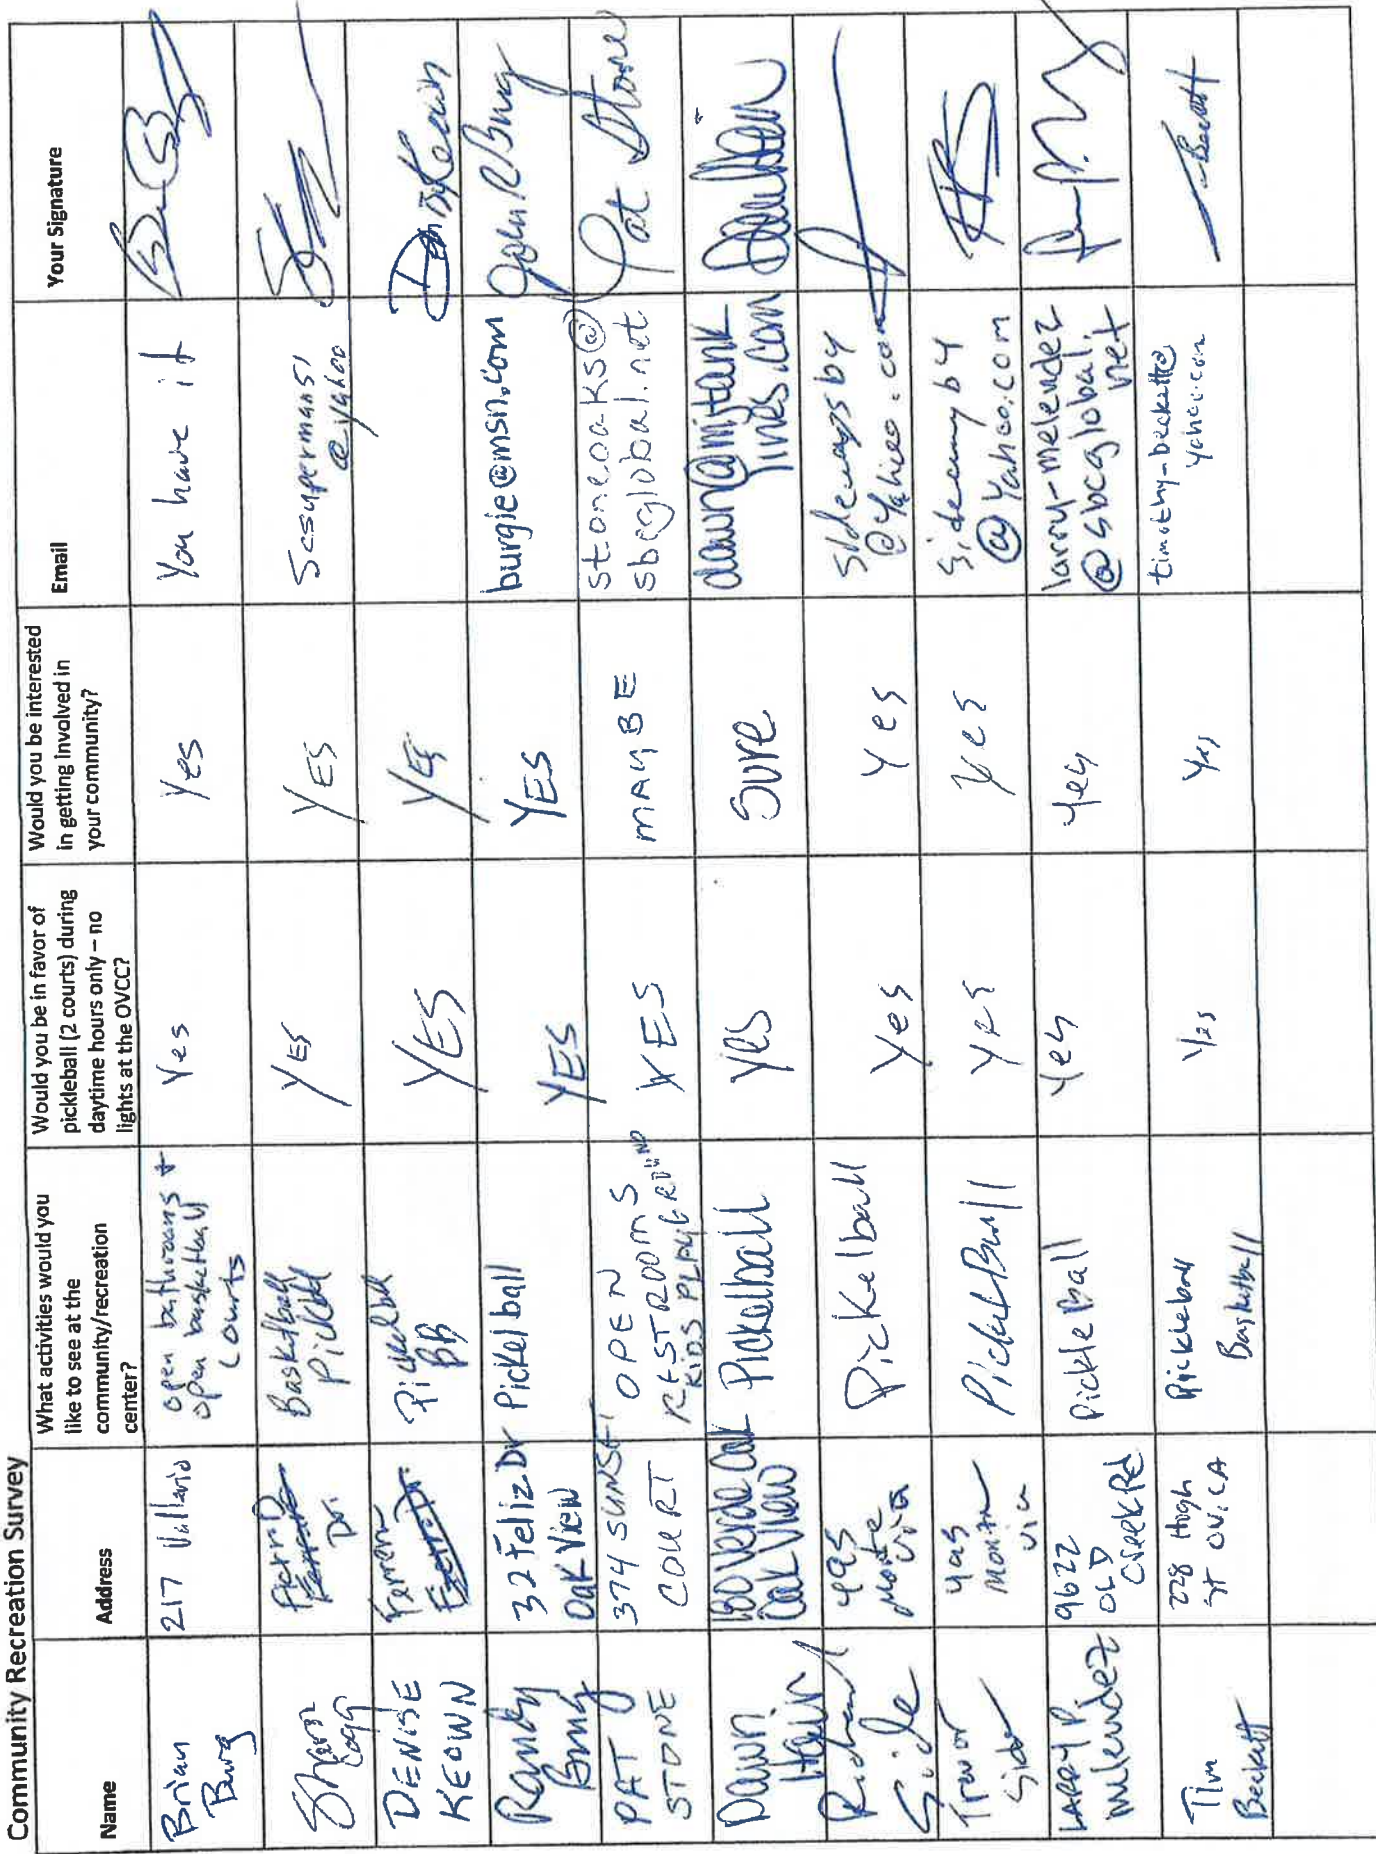 Community Recreation Survey
Name
Address
What activities would you
like to see at the
community/recreation
center?
Would you be in favor of
pickleball (2 courts) during
daytime hours only – no
lights at the OVCC?
Would you be interested
in getting involved in
your community?
Email
Your Signature
Brian
Burg
217 Vallerio
open bathrooms +
open basketball
courts
Yes
Yes
You have it
Dr.
Basketball
Pickball
YES
YES
Scsuperman51
@yahoo
DENISE
KEOWN
Pickelball
BB
YES
YES
Randy
32 Feliz Dr
Oak View
Pickelball
YES
YES
burgie@msn.com
PAT
STONE
374 SUNSET
COURT
OPEN
RESTROOMS
KIDS PLAYGROUND
YES
MAYBE
stoneoaks@
sbcglobal.net
Pat Stone
Dawn
Hain
Verde Oak
Oak View
Pickelball
yes
Sure
dawn@mjtank
lines.com
Richard
Side
495
Monte
Via
Pickelball
Yes
Yes
@yahoo.com
Trevor
Side
495
Monte
Via
PickelBall
Yes
Yes
@yahoo.com
LARRY P.
Melendez
9622
OLD
Creek Rd
PickleBall
Yes
Yes
larry-melendez
@sbcglobal.
net
Tim
Beckett
228 High
ST OV, CA
Pickleball
Basketball
Yes
Yes
timothy-beckett@
yahoo.com